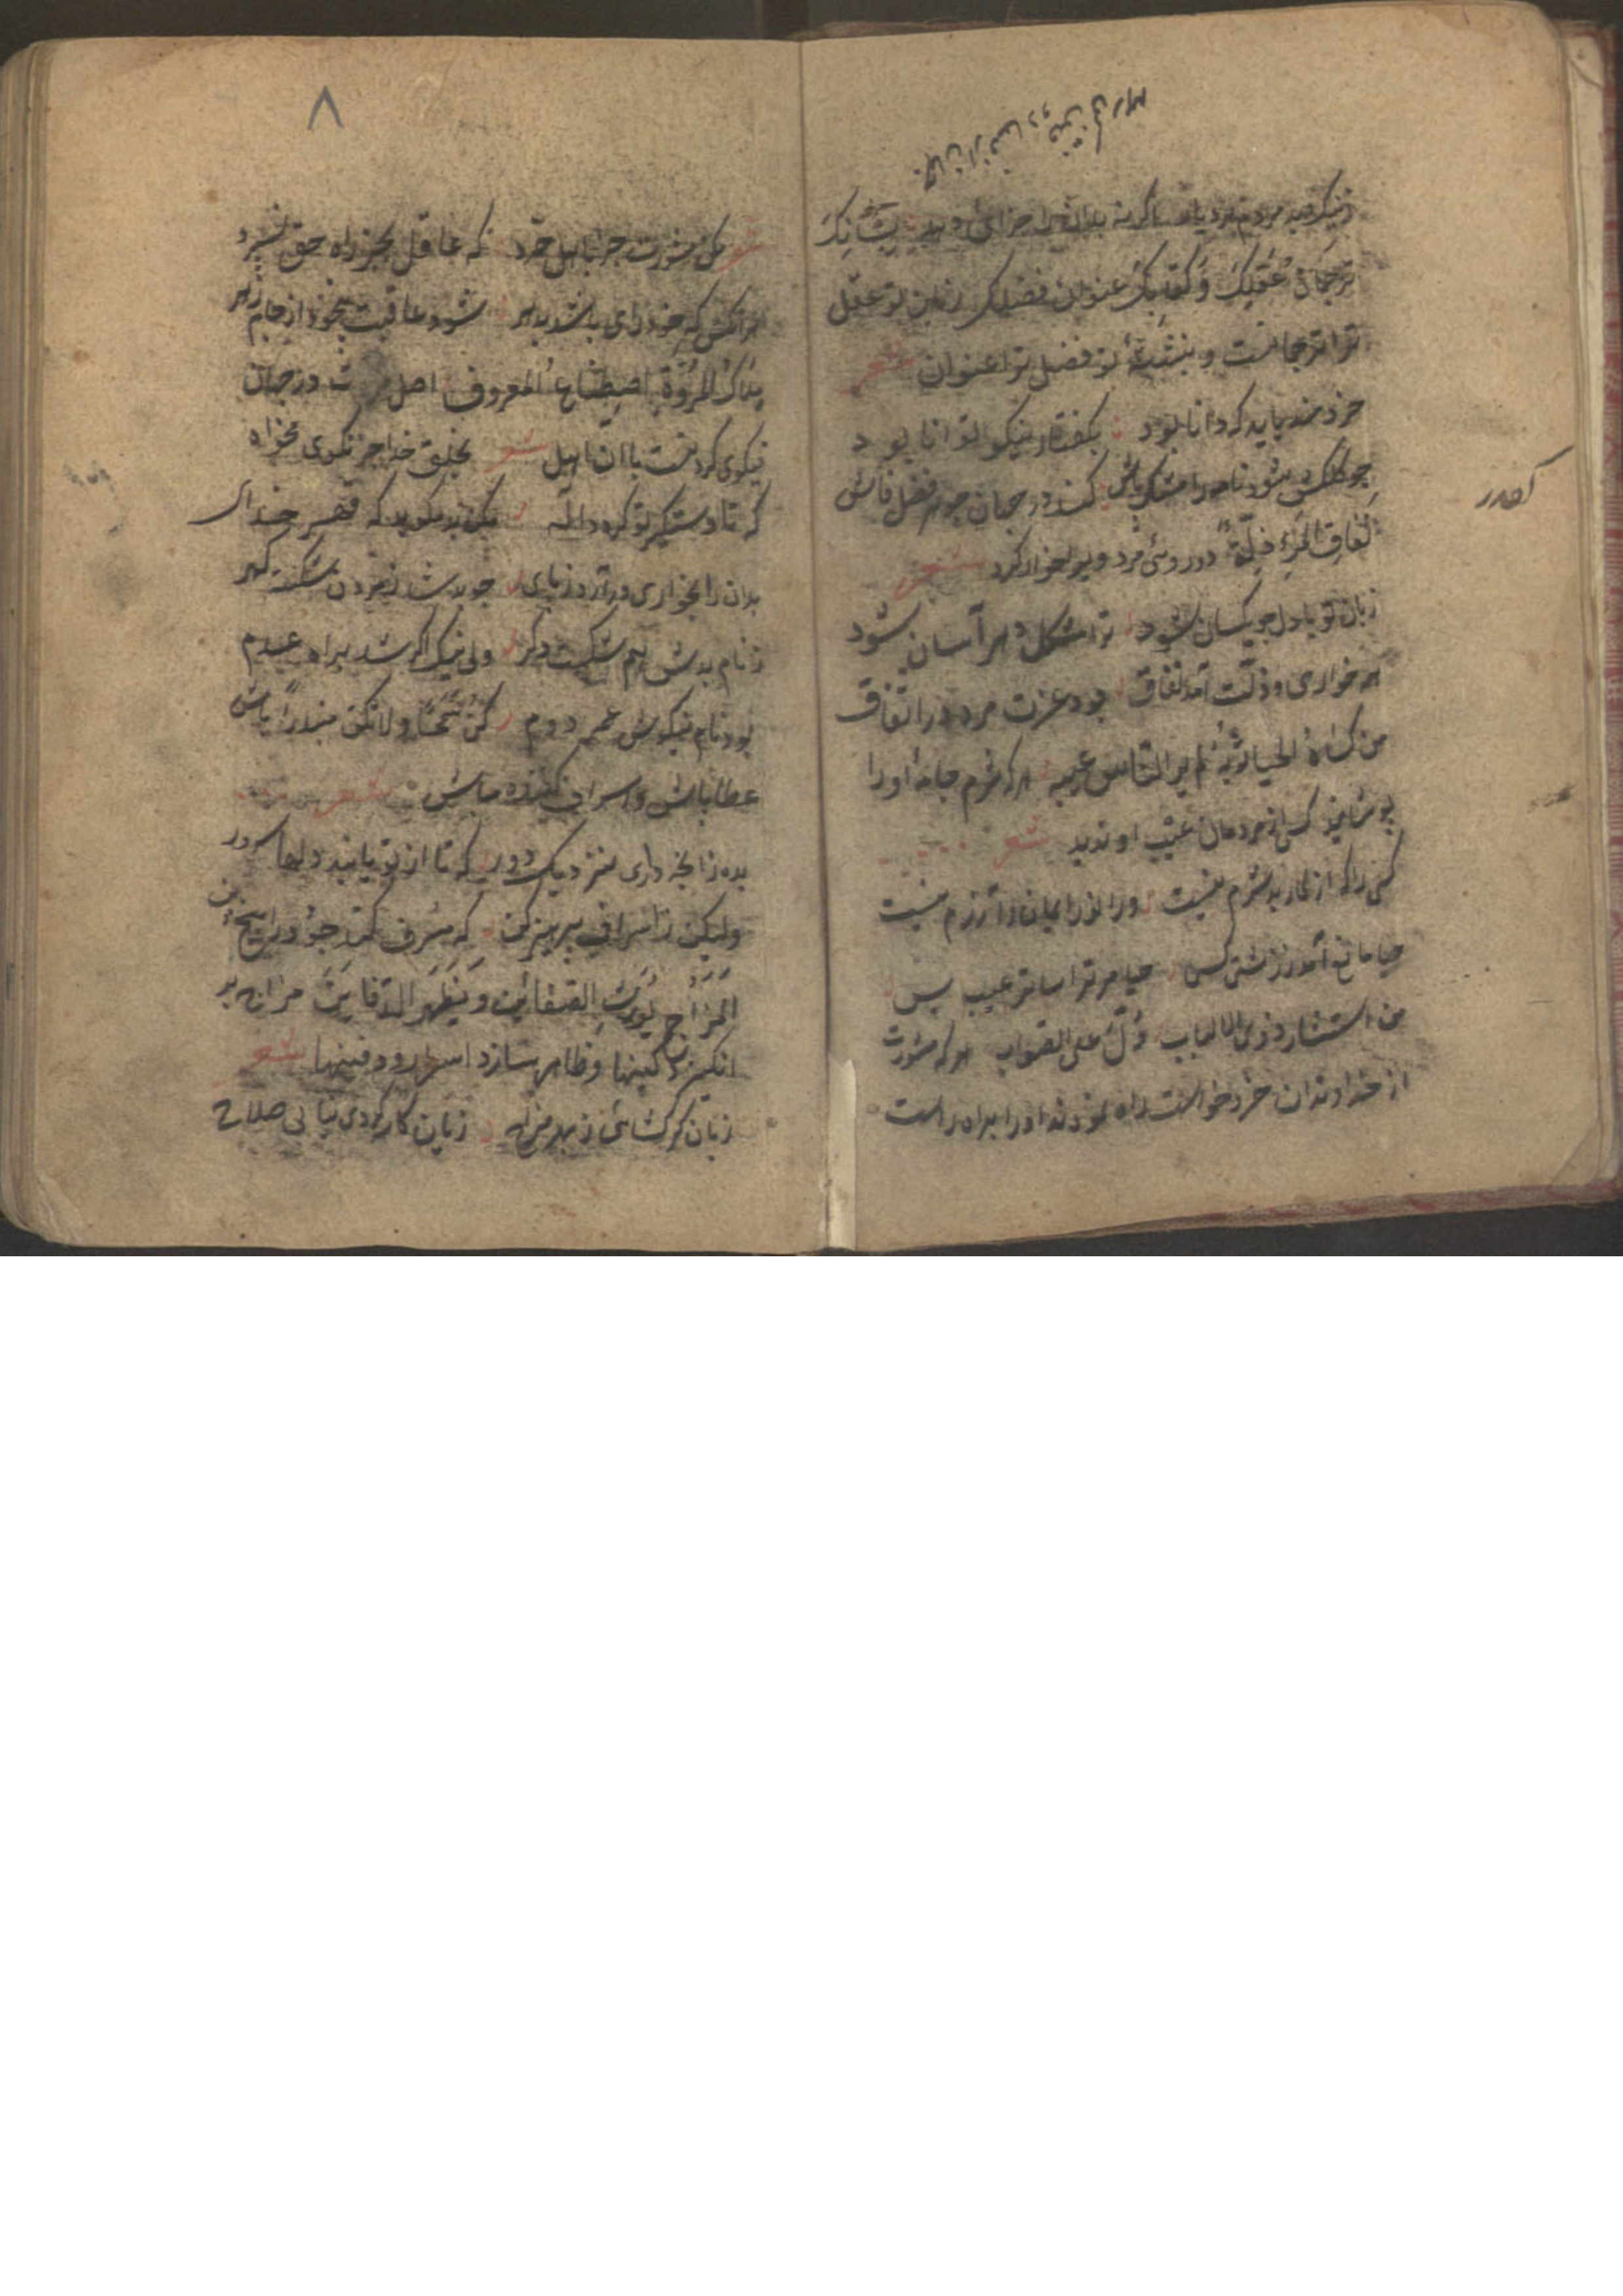 ترجمان عقلک و کتابک عنوان فضلک زبان تو عقل
ترا ترجمانست و نبشتهٔ تو فضل ترا عنوان شعر
خردمند باید که دانا بود بگفتار نیکو توانا بود
چو کلکش شود نامه را مشک پاش کند در جهان جرم فضل فاش
نفاق المرء ذلة دوروئی مرد ویرا خوار کرد شعر
زبان تو با دل چو یکسان شود ترا مشکل دهر آسان شود
همه خواری و ذلت آمد نفاق بود عزت مرد در اتفاق
من کساه الحیا ثوبه لم یر الناس عیبه هر که شرم جامه او را
پوشانید کسی از مردمان عیب او ندید شعر
کسی را که از کار بد شرم نیست ورا نور ایمان و آزرم نیست
حیا مانع آمد ز زشتی کس حیا مر ترا ساتر عیب بس
من استشار ذوی الالباب دل علی الصواب هر که مشورت
از خداوندان خرد خواست راه نمودند او را براه راست
۸
شعر مکن مشورت جز باهل خرد که عاقل بجز راه حق نسپرد
هر آنکس که خودرای باشد بدهر شود عاقبت بیخود از جام زهر
ملاک المروة اصطناع المعروف اصل در جهان
نیکوی کردنست با آن اهل شعر بخلق خدا جز نکوی مخواه
که تا دستگیر تو گردد اله مکن بد مگو بد که قهر خدای
بدان را بخواری درآرد ز پای چو بد شد ز مردن شکست گهر
ز نام بدش هم شکست دگر ولی نیک اگر شد براه عدم
بود نام نیکوش عمر دوم کن سمحا و لا تکن مبذرا باش
عطاپاش و اسراف کننده مباش شعر
بده زانچه داری بنزدیک و دور که تا از تو یابند دلها سرور
ولیکن ز اسراف پرهیز کن که مسرف کند جود را بیخ و بن
المزاح یورث الضغائن و یظهر الدفائن مزاح بر
انگیزد کینها و ظاهر سازد اسرار و دفینها شعر
زبان گر گشائی ز بهر مزاح زبان کار گردی نیابی صلاح